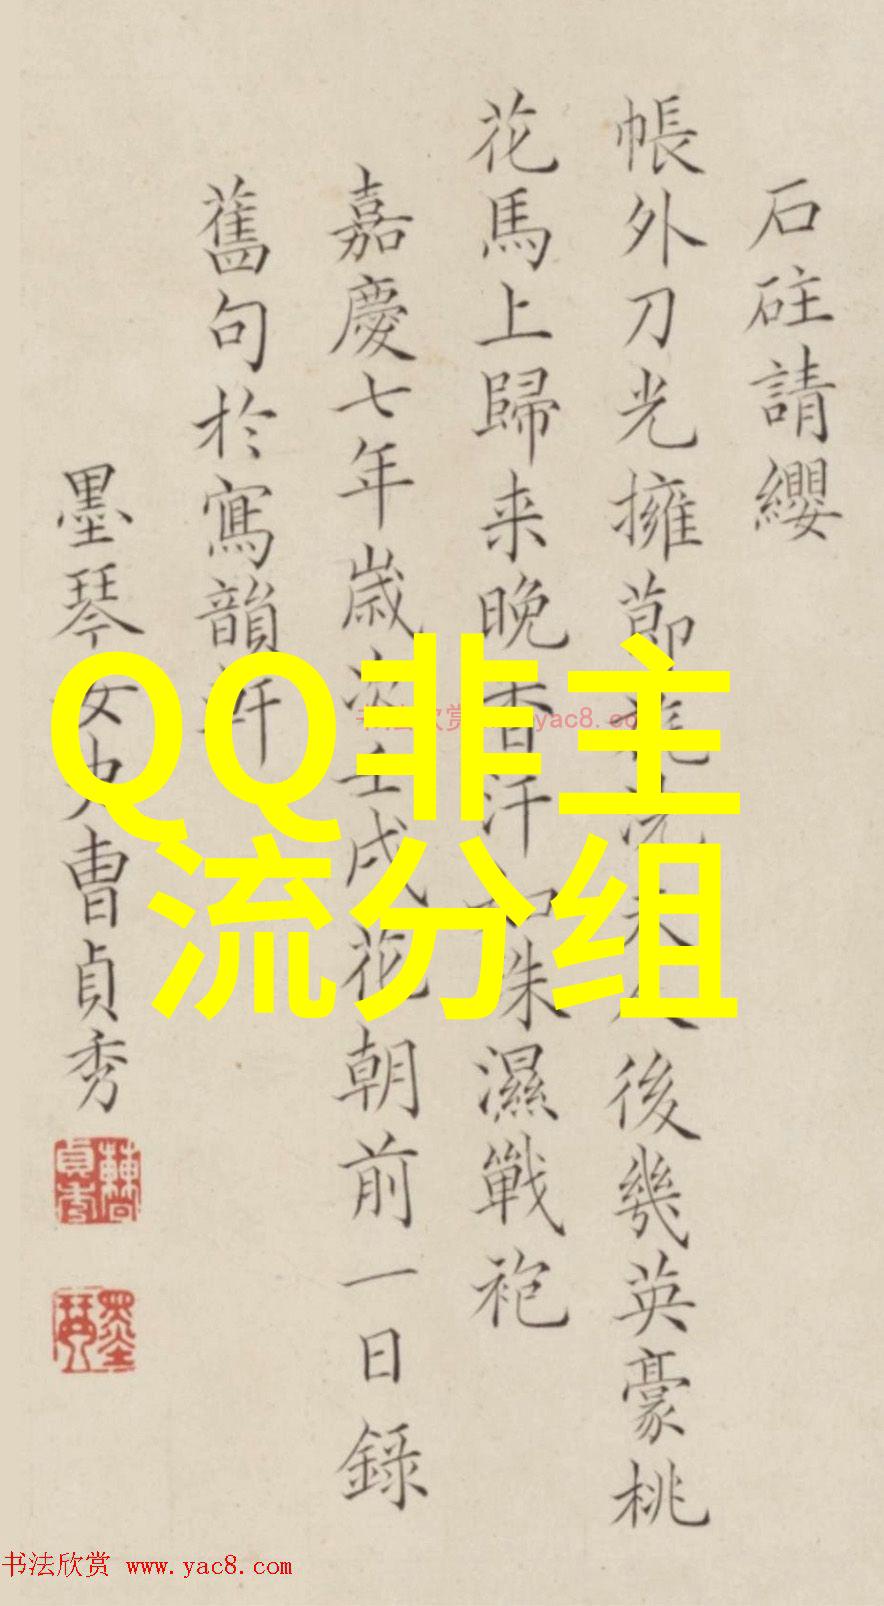 石砫請纓
帳外刀光擁節旄洗夫人後幾英豪桃
花馬上歸来晚香汗和珠濕戰袍
嘉慶七年歲次壬戌花朝前一日錄
舊句於寫韻軒
墨琴女史曹貞秀
QQ非主
流分组
书法欣赏 www.yac8.com